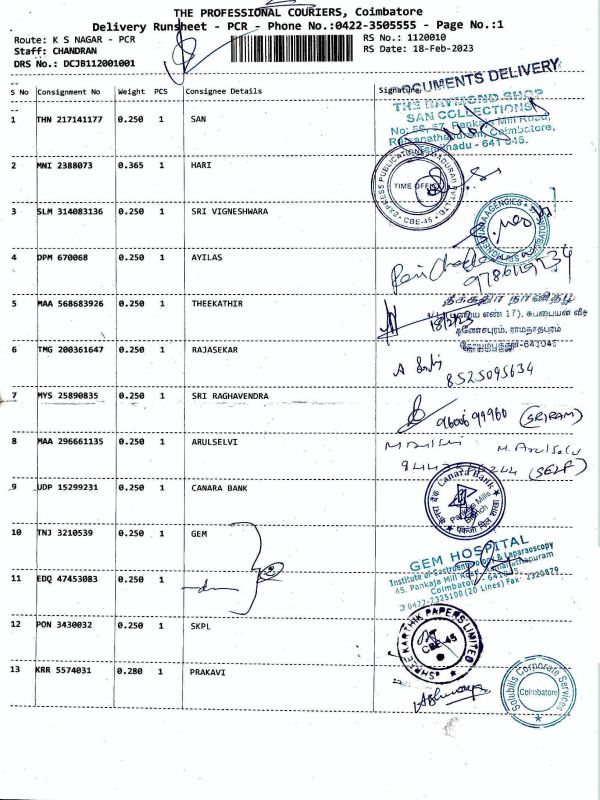 THE PROFESSIONAL COURIERS, Coimbatore
Delivery Runsheet - PCR - Phone No.:0422-3505555 - Page No.:1
Route: K S NAGAR - PCR
RS No.: 1120010
Staff: CHANDRAN
RS Date: 18-Feb-2023
DRS No.: DCJB112001001
S No Consignment No Weight PCS Consignee Details Signature
DOCUMENTS DELIVERY
1 THN 217141177 0.250 1 SAN
THE RAYMOND SHOP
SAN COLLECTIONS
No: 56, 67, Pankaja Mill Road,
Coimbatore,
641 045.
2 MNI 2388073 0.365 1 HARI
TIME OFFICE
CBE-45
3 SLM 314083136 0.250 1 SRI VIGNESHWARA
4 DPM 670068 0.250 1 AYILAS
5 MAA 568683926 0.250 1 THEEKATHIR
6 TMG 200361647 0.250 1 RAJASEKAR
8525095634
7 MYS 25890835 0.250 1 SRI RAGHAVENDRA
(SRIRAM)
8 MAA 296661135 0.250 1 ARULSELVI
(SELF)
9 UDP 15299231 0.250 1 CANARA BANK
Canara Bank
10 TNJ 3210539 0.250 1 GEM
11 EDQ 47453083 0.250 1
GEM HOSPITAL
Institute of Gastroenterology & Laparoscopy
45, Pankaja Mill Road, Ramanathapuram
Coimbatore - 641045.
0422-2325100 (20 Lines) Fax: 2320879
12 PON 3430032 0.250 1 SKPL
SHREE KARTHIK PAPERS LIMITED
CBE-45
13 KRR 5574031 0.280 1 PRAKAVI
Solubilis Corporate Services
Coimbatore